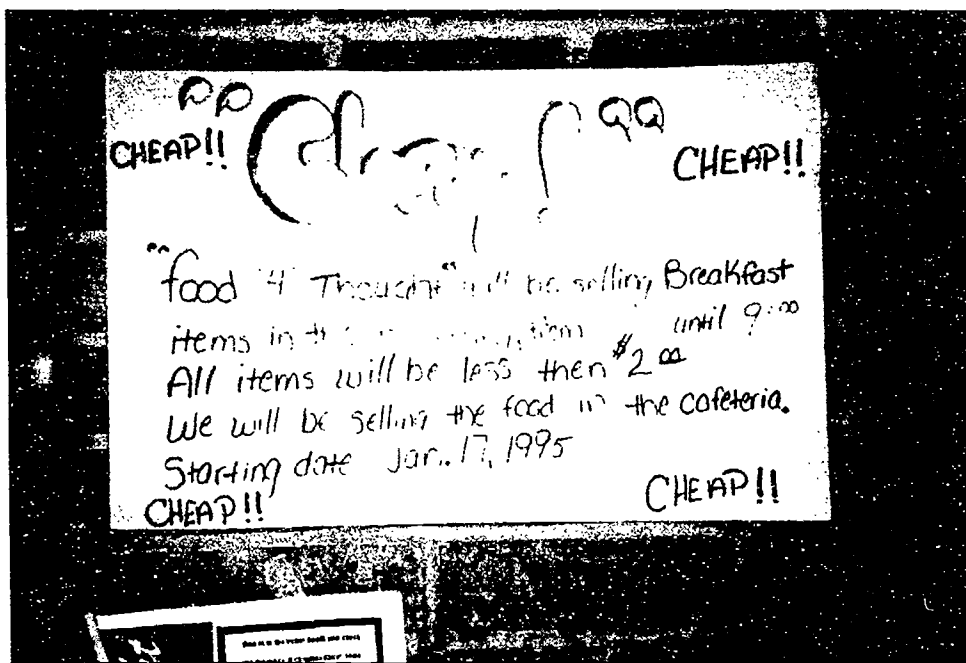 CHEAP!!
CHEAP!!
"food "4" Thought" will be selling Breakfast
items in the until 9:00
All items will be less then $2.00
We will be selling the food in the cafeteria.
Starting date Jan. 17, 1995
CHEAP!!
CHEAP!!